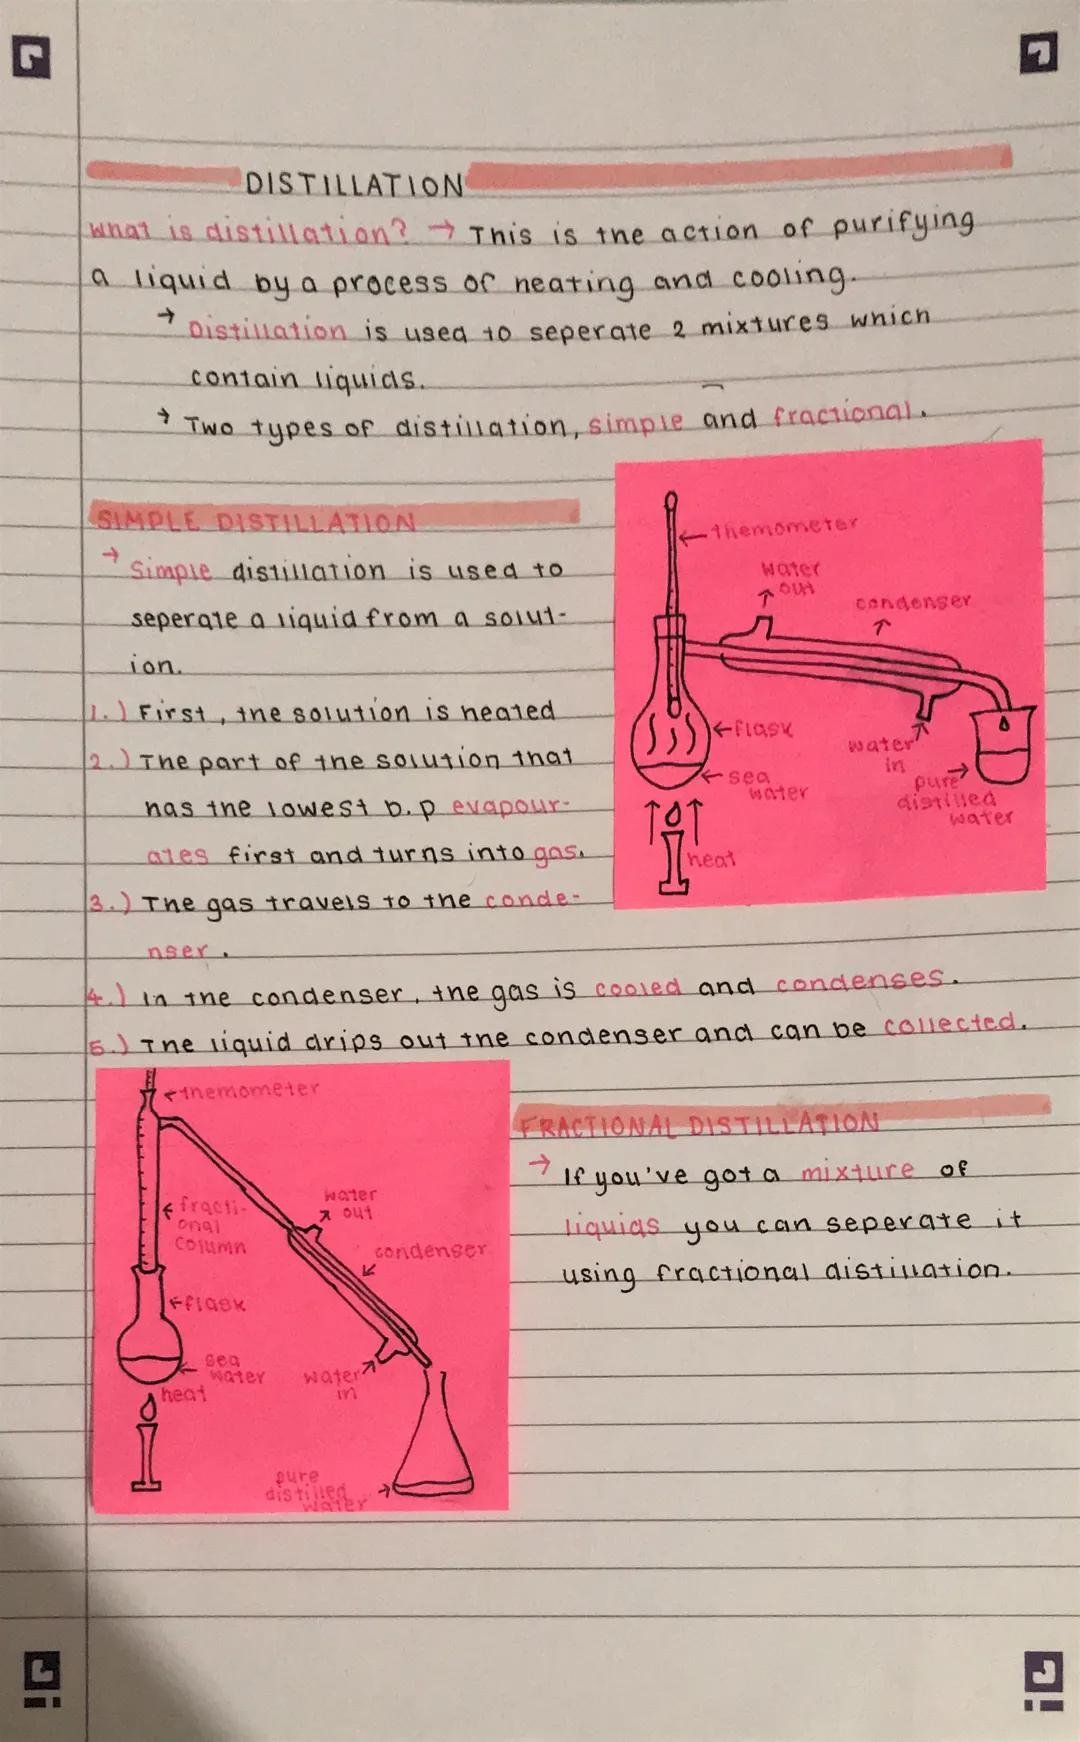 DISTILLATION
What is distillation? → This is the action of purifying
a liquid by a process of heating and cooling.
→ Distillation is used to seperate 2 mixtures which
contain liquids.
→ Two types of distillation, simple and fractional.
SIMPLE DISTILLATION
→ Simple distillation is used to
seperate a liquid from a solut-
ion.
1.) First, the solution is heated
2.) The part of the solution that
has the lowest b.p evapour-
ates first and turns into gas.
3.) The gas travels to the conde-
nser.
4.) In the condenser, the gas is cooled and condenses.
5.) The liquid drips out the condenser and can be collected.
← themometer
water
↑ out
condenser
↑
← flask
← sea
water
water
in
pure →
distilled
water
heat
← themometer
← fracti-
onal
column
water
↗ out
condenser
↙
← flask
sea
water
heat
water
in
pure
distilled →
water
FRACTIONAL DISTILLATION
→ If you've got a mixture of
liquids you can seperate it
using fractional distillation.